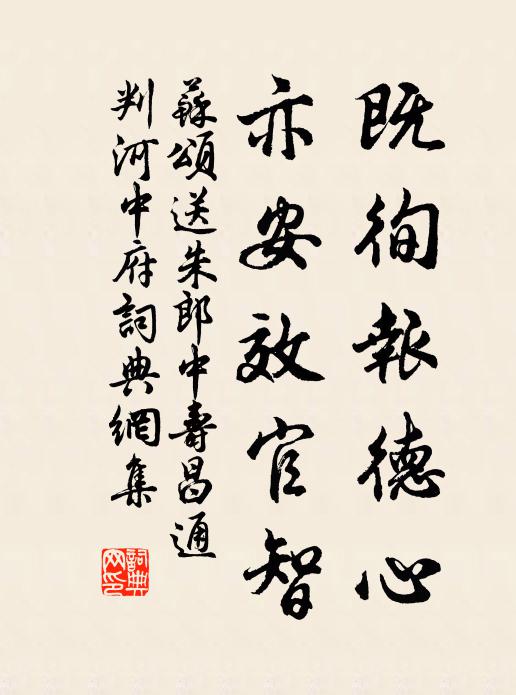 既徇報德心
亦安效官智
蘇頌送朱郎中壽昌通
判河中府詞典網集
詞典
网印